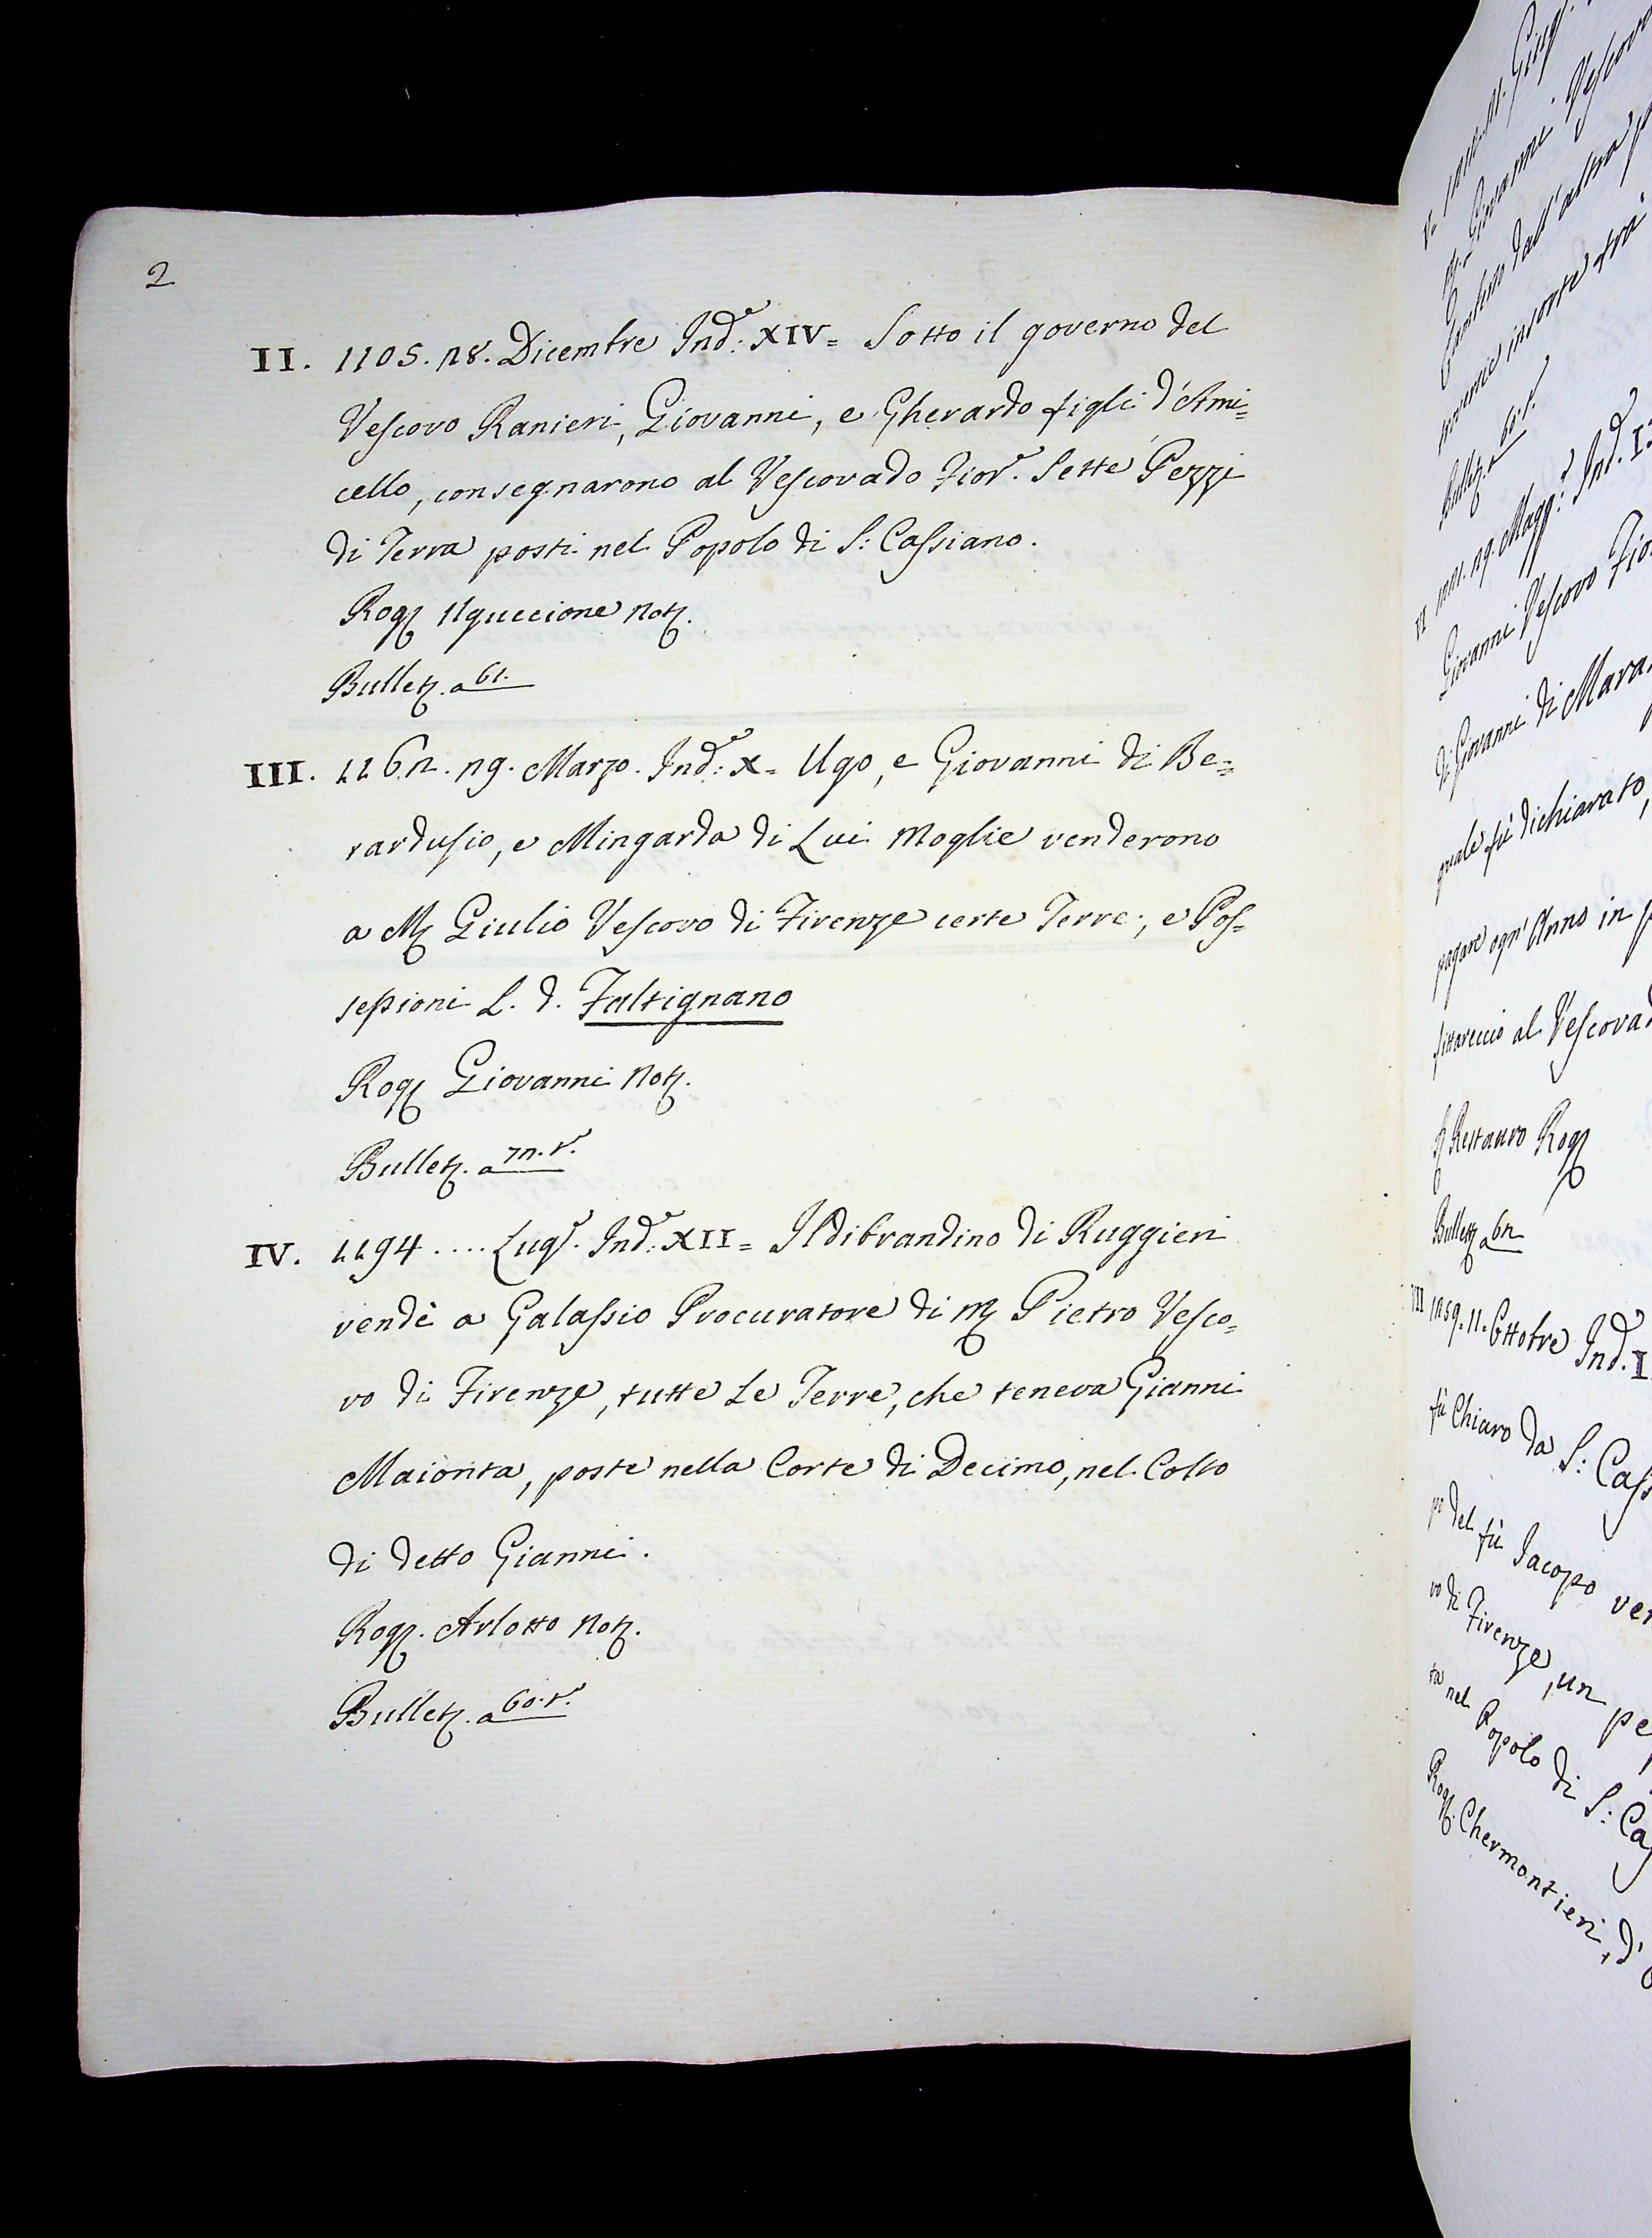 2
II. 1105. 28. Dicembre Ind.e XIV = Sotto il governo del
Vescovo Ranieri, Giovanni, e Gherardo figli d'Ami=
cello, consegnarono al Vescovado Fior.o Sette Pezzi
di Terra posti nel Popolo di S: Cassiano.
Rog. Uguccione Not.
Bullet. a 61.
III. 1162. 29. Marzo. Ind.e X = Ugo, e Giovanni di Be=
rardusio, e Mingarda di Lui Moglie venderono
a M. Giulio Vescovo di Firenze certe Terre, e Pos=
sessioni L. d. Faltignano
Rog. Giovanni Not.
Bullet. a 72. t.o
IV. 1194 .... Lug.o Ind.e XII = Ildibrandino di Ruggieri
vendè a Galassio Procuratore di M. Pietro Vesco=
vo di Firenze, tutte Le Terre, che teneva Gianni
Maionta, poste nella Corte di Decimo, nel Colto
di detto Gianni.
Rog. Arlotto Not.
Bullet. a 60. t.o
Giovanni Vescovo
dall'altra
insorte trà
Bullet. a 60. t.
VI 29. Magg.o Ind. I
Giovanni Vescovo Fio
di Giovanni di Mara
quale fù dichiarato,
pagare ogn'Anno in
fittareccio al Vescova
Restauro Rog.
Bullet. a 62
VII 1259. 11. Ottobre Ind. I
fù Chiaro da S: Cass
po del fù Jacopo ve
vo di Firenze, un pe
ta nel Popolo di S: Ca
Rog. Chermontieri, d'